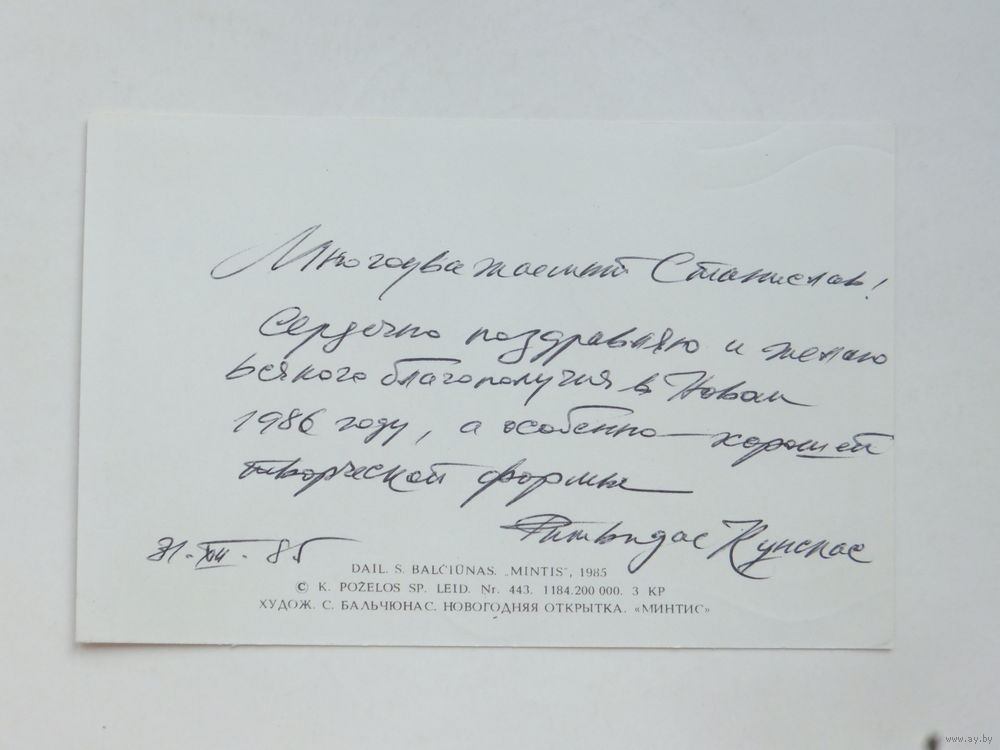 Многоуважаемый Станислав!
Сердечно поздравляю и желаю
всякого благополучия в Новом
1986 году, а особенно хорошей
творческой формы
Ритвидас Кунскас
31.XII.85
DAIL. S. BALČIŪNAS. „MINTIS", 1985
© K. POŽELOS SP. LEID. Nr. 443. 1184.200 000. 3 KP
ХУДОЖ. С. БАЛЬЧЮНАС. НОВОГОДНЯЯ ОТКРЫТКА. «МИНТИС»
www.ay.by